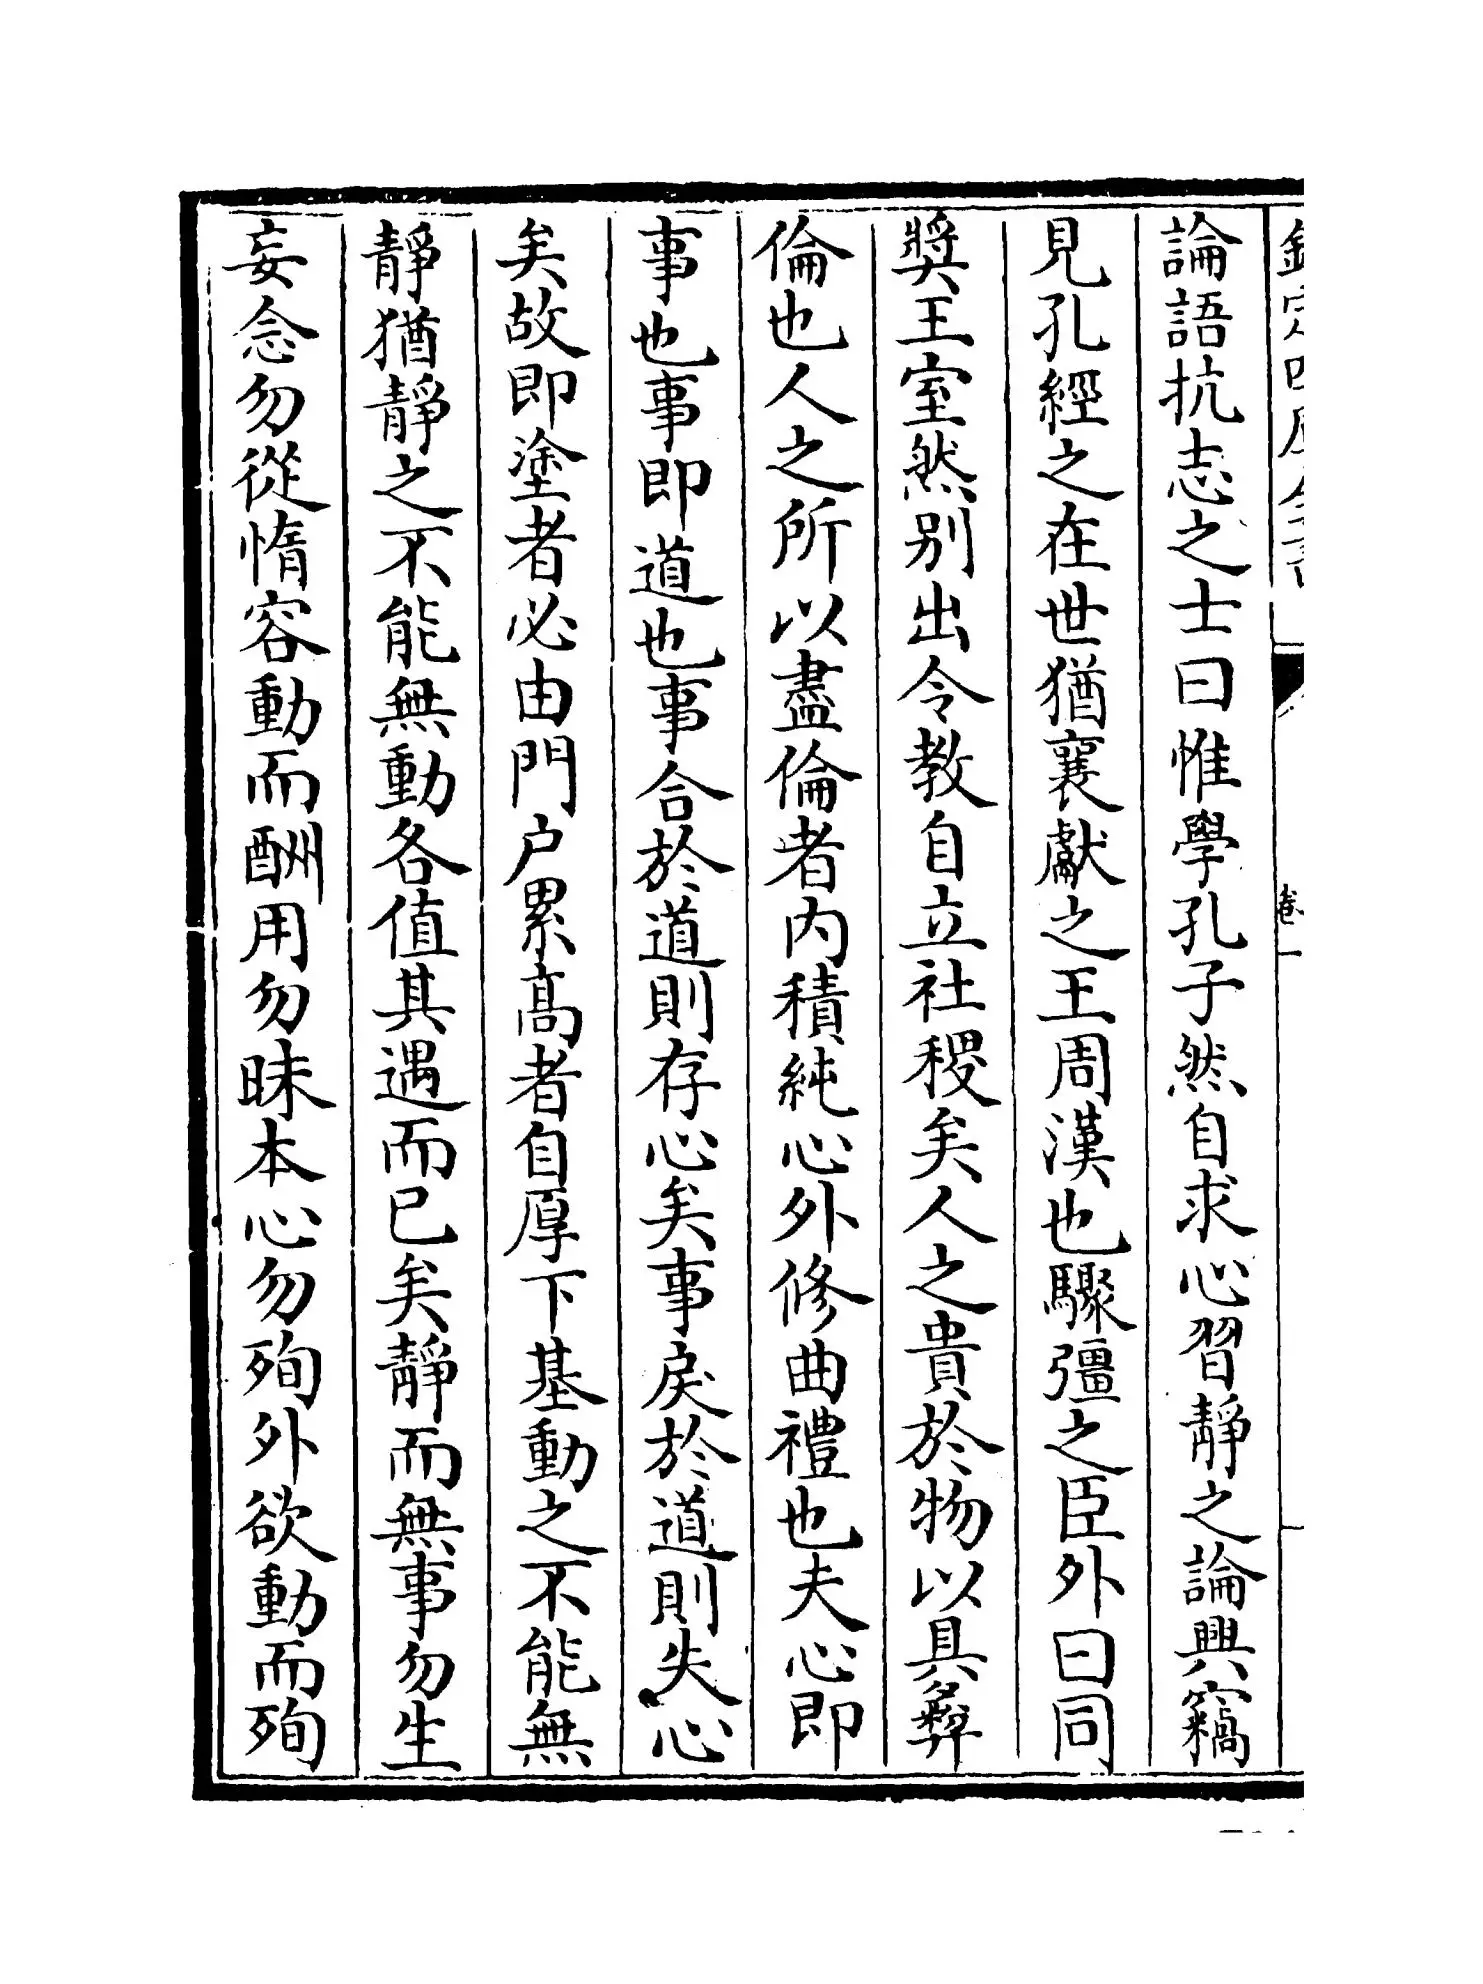 論語抗志之士曰惟學孔子然自求心習靜之論興竊
見孔經之在世猶襄獻之王周漢也驟彊之臣外曰同
奬王室然别出令教自立社稷矣人之貴於物以具彞
倫也人之所以盡倫者内積純心外修曲禮也夫心即
事也事即道也事合於道則存心矣事戾於道則失心
矣故即塗者必由門户累高者自厚下基動之不能無
靜猶靜之不能無動各值其遇而已矣靜而無事勿生
妄念勿從惰容動而酬用勿昧本心勿殉外欲動而殉